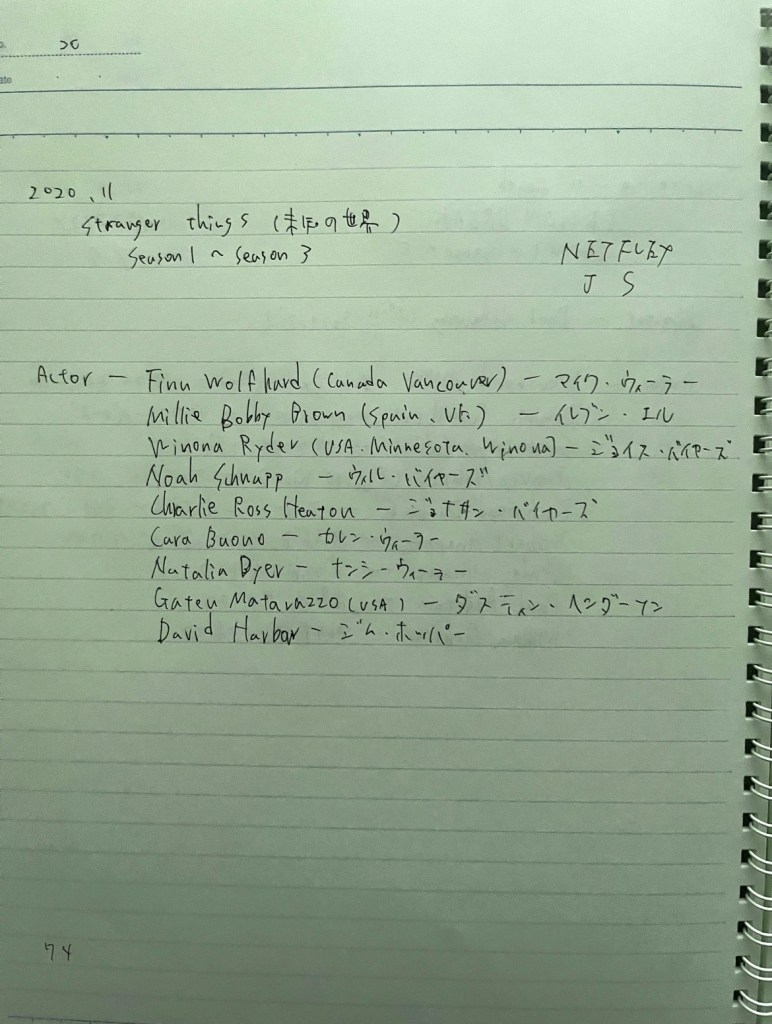 o.
ate
2020.11
Stranger things (未知の世界)
Season1 ~ Season 3
NETFLEX
J S
Actor - Finn Wolfhard (Canada Vancouver) - マイク・ウィーラー
Millie Bobby Brown (Spain. UK.) - イレブン・エル
Winona Ryder (USA. Minnesota. Winona) - ジョイス・バイヤーズ
Noah Schnapp - ウィル・バイヤーズ
Charlie Ross Heaton - ジョナサン・バイヤーズ
Cara Buono - カレン・ウィーラー
Natalia Dyer - ナンシーウィーラー
Gaten Matarazzo (USA) - ダスティン・ヘンダーソン
David Harbor - ジム・ホッパー
74